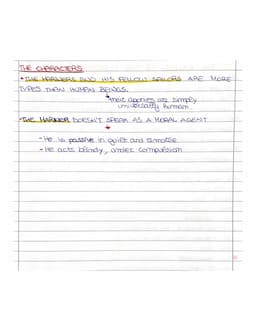 THE CHARACTERS
• THE MARINERS AND HIS FELLOW SAILORS ARE MORE
TYPES THAN HUMAN BEINGS.
their agonies are simply
universally human.
• THE MARINER DOESN'T SPEAK AS A MORAL AGENT
- He is passive in guilt and remorse
- He acts blindly, under compulsion